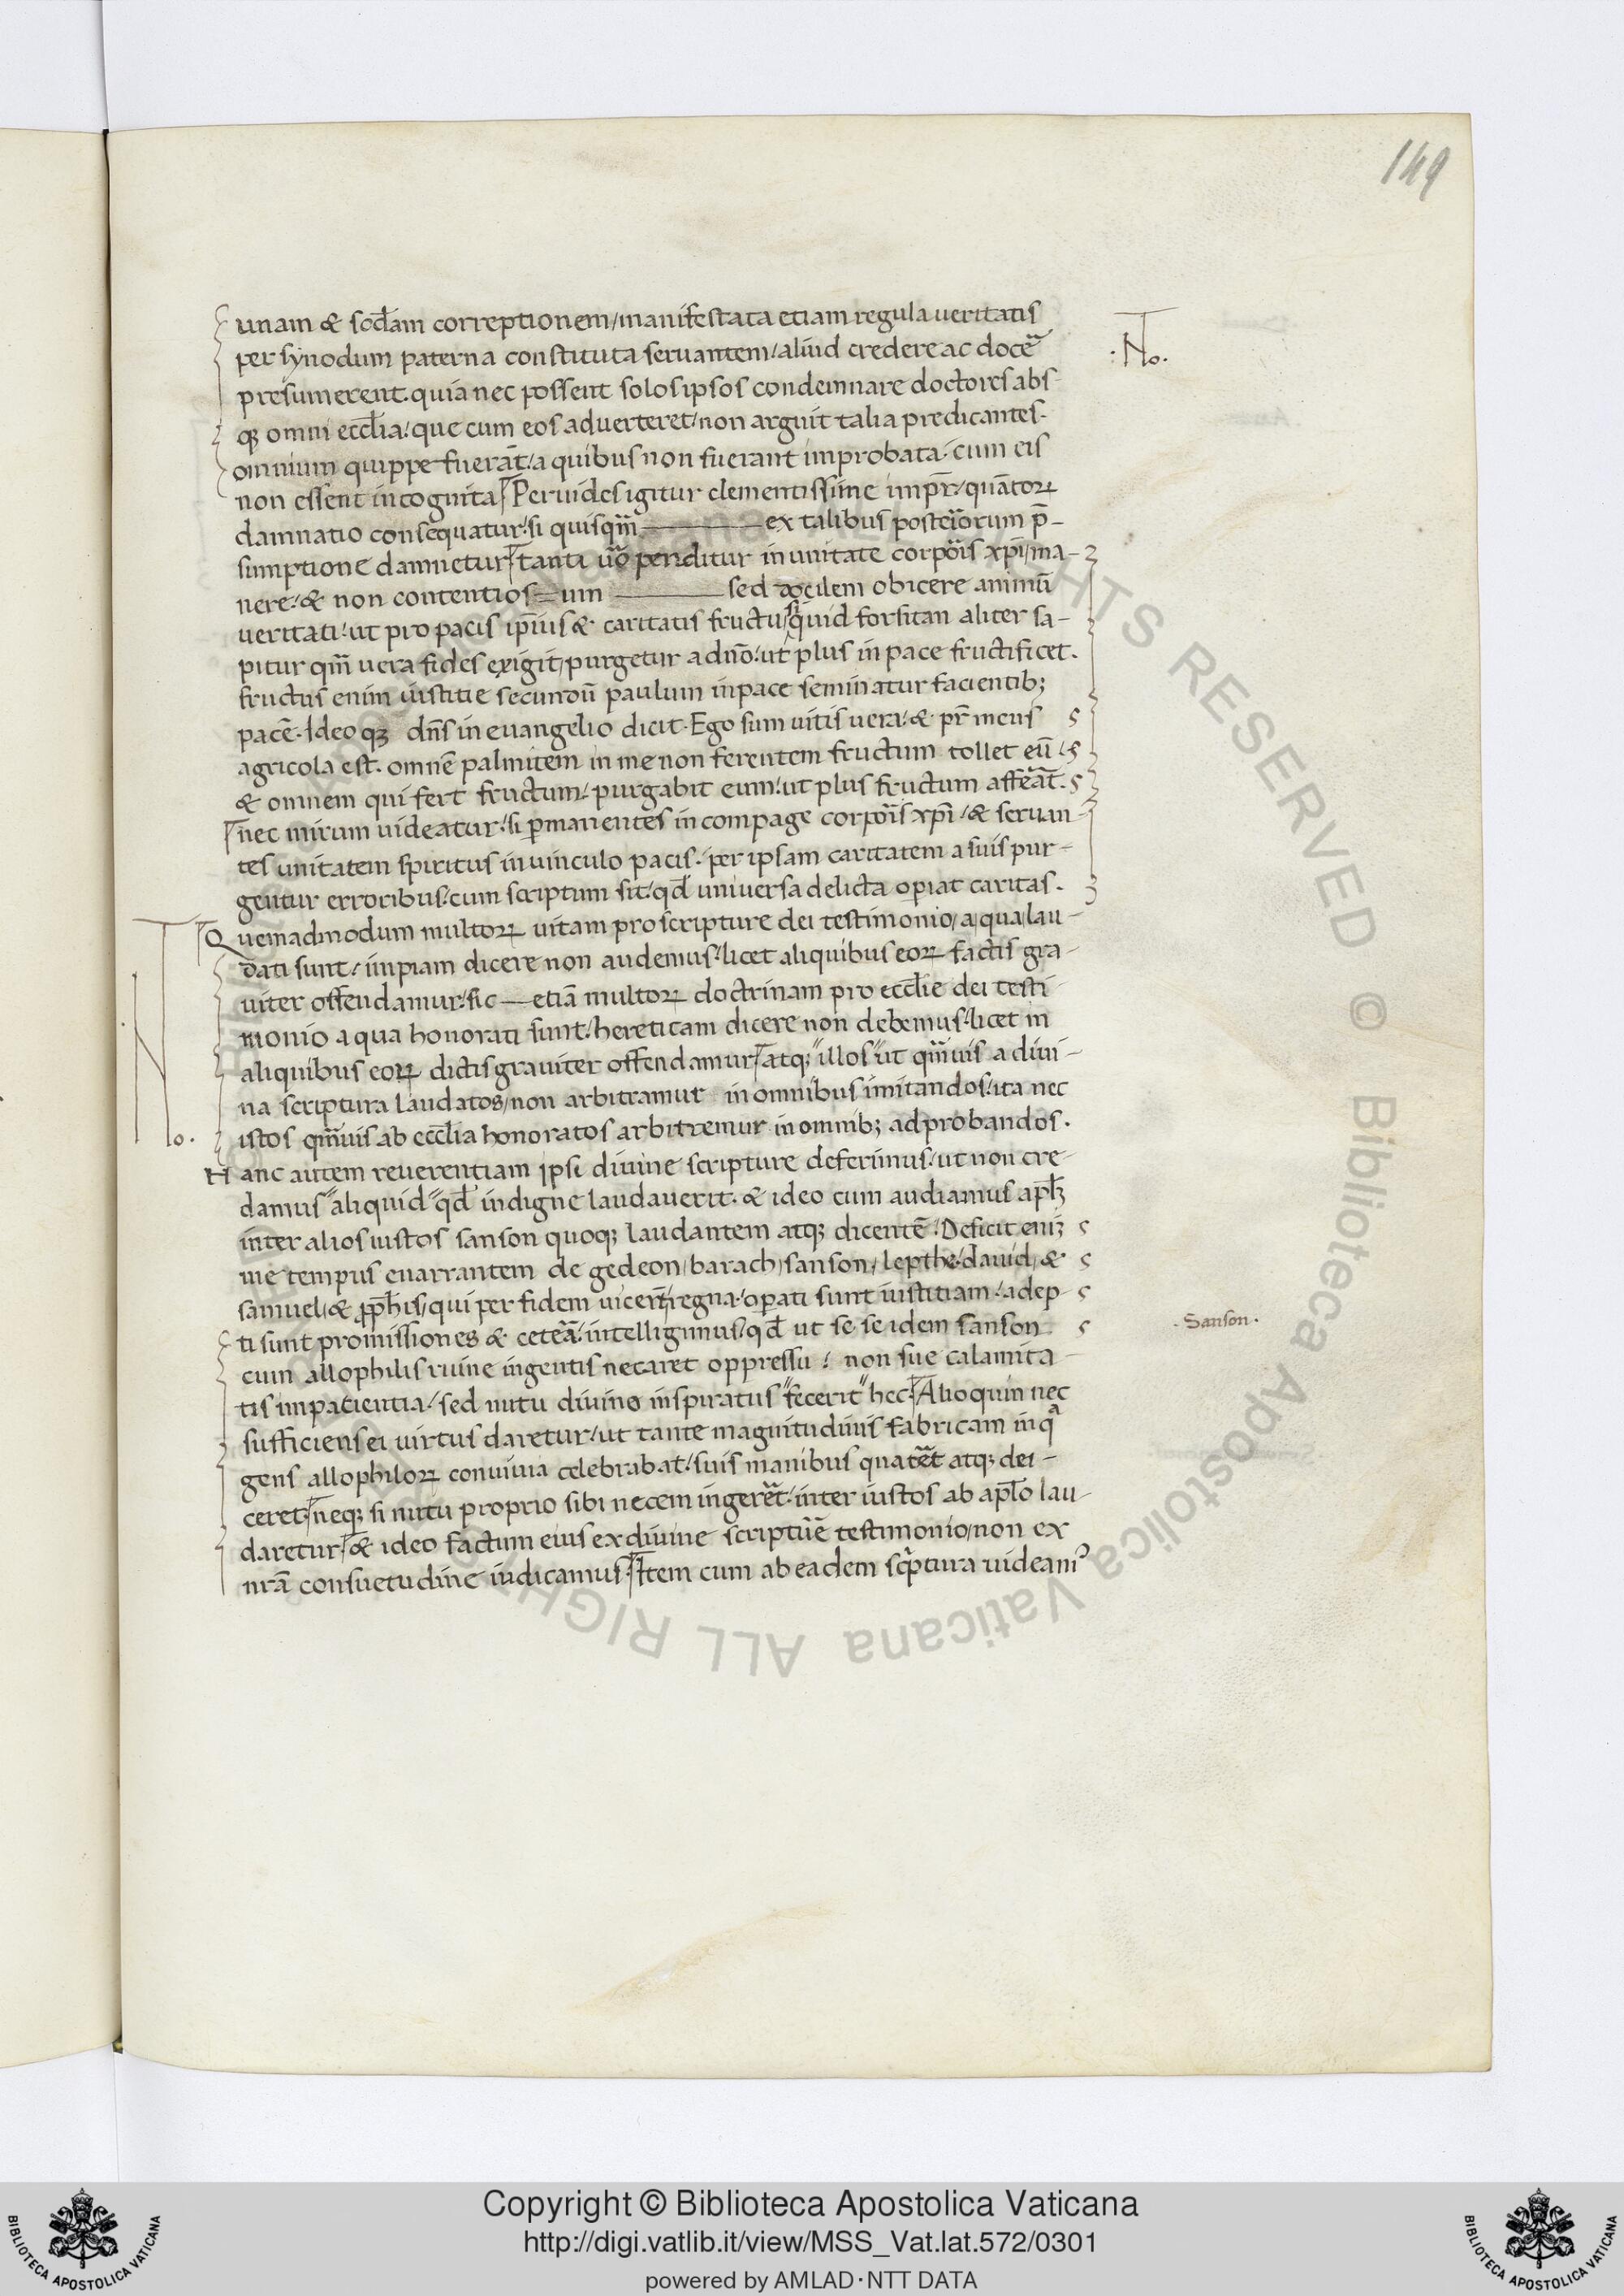 149
unam & sodā̄am correptionem/manifestata etiam regula ueritatis
per synodum paterna constituta seruantem/aliud credere ac docēa
presumerent. quia nec possent solos ipsos condemnare doctores abs-
qꝫ omni eccl̄ia/que cum eos aduerteret/non arguit talia predicantes.
omnium quippe fuerāt/a quibus non fuerant improbata. cum eis
non essent incognita Peruides igitur clementissime impr̄/quātoꝝ
damnatio consequatur/si quisqm̄ ex talibus posterīorum p̄-
sumptione damnetur tanti ūo penditur in unitate corpōis xp̄i/ma-
nere/& non contentios=um sed docilem obicere animū
ueritati/ut pro pacis ip̄ius & caritatis fructu si quid forsitan aliter sa-
pitur qm̄ uera fides exigit/purgetur a dn̄o/ut plus in pace fructificet.
fructus enim iustitie secundū paulum in pace seminatur facientibꝫ
pacē. Ideoqꝫ dn̄s in euangelio dicit. Ego sum uitis uera/& pr̄ meus
agricola est. omnē palmitem in me non ferentem fructum tollet eū
& omnem qui fert fructum/purgabit eum/ut plus fructum affeāt.
nec mirum uideatur/si ꝑmanentes in compage corpōis xp̄i/& seruan-
tes unitatem spiritus in uinculo pacis. per ipsam caritatem a suis pur-
gentur erroribus/cum scriptum sit/qd̄ uniuersa delicta oꝑiat caritas.
Quemadmodum multoꝝ uitam pro scripture dei testimonio/a qua lau-
dati sunt/impiam dicere non audemus/licet aliquibus eoꝝ factis gra-
uiter offendamur/sic — etiā multoꝝ doctrinam pro eccl̄ie dei testi-
monio a qua honorati sunt/hereticam dicere non debemus/licet in
aliquibus eoꝝ dictis grauiter offendamur atqꝫ illos ut qm̄uis a diui-
na scriptura laudatos/non arbitramur in omnibus imitandos/ita nec
istos qm̄uis ab eccl̄ia honoratos arbitremur in omnibꝫ adprobandos.
Hanc autem reuerentiam ipsi diuine scripture deferimus/ut non cre-
damus aliquid qd̄ indigne laudauerit. & ideo cum audiamus apl̄ꝫ
inter alios iustos sanson quoqꝫ laudantem atqꝫ dicentē/Deficit eniꝫ
me tempus enarrantem de gedeon/barach/sanson/Iepthe/dauid/&
samuel/& ꝓph̄is/qui per fidem uicer̄t regna/oꝑati sunt iustitiam/adep-
ti sunt promissiones & cetēa/intelligimus/qd̄ ut se se idem sanson
cum allophilis ruine ingentis necaret oppressu/non sue calamita-
tis impatientia/sed nutu diuino inspiratus fecerit hec. Alioquin nec
sufficiens ei uirtus daretur/ut tante magnitudinis fabricam in qa
gens allophiloꝝ conuiuia celebrabat/suis manibus quatēt atqꝫ dei-
ceret neqꝫ si nutu proprio sibi necem ingerēt/inter iustos ab apl̄o lau-
daretur & ideo factum eius ex diuine scriptūe testimonio/non ex
nr̄a consuetudine iudicamus. Item cum ab eadem scͥptura uideamꝰ
No.
No.
. Sanson .
Copyright © Biblioteca Apostolica Vaticana
http://digi.vatlib.it/view/MSS_Vat.lat.572/0301
powered by AMLAD·NTT DATA
BIBLIOTECA APOSTOLICA VATICANA
BIBLIOTECA APOSTOLICA VATICANA
© Biblioteca Apostolica Vaticana ALL RIGHTS RESERVED